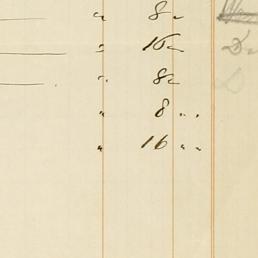 " 8 "
" 16 "
" 8 "
" 8 " "
" 16 " "